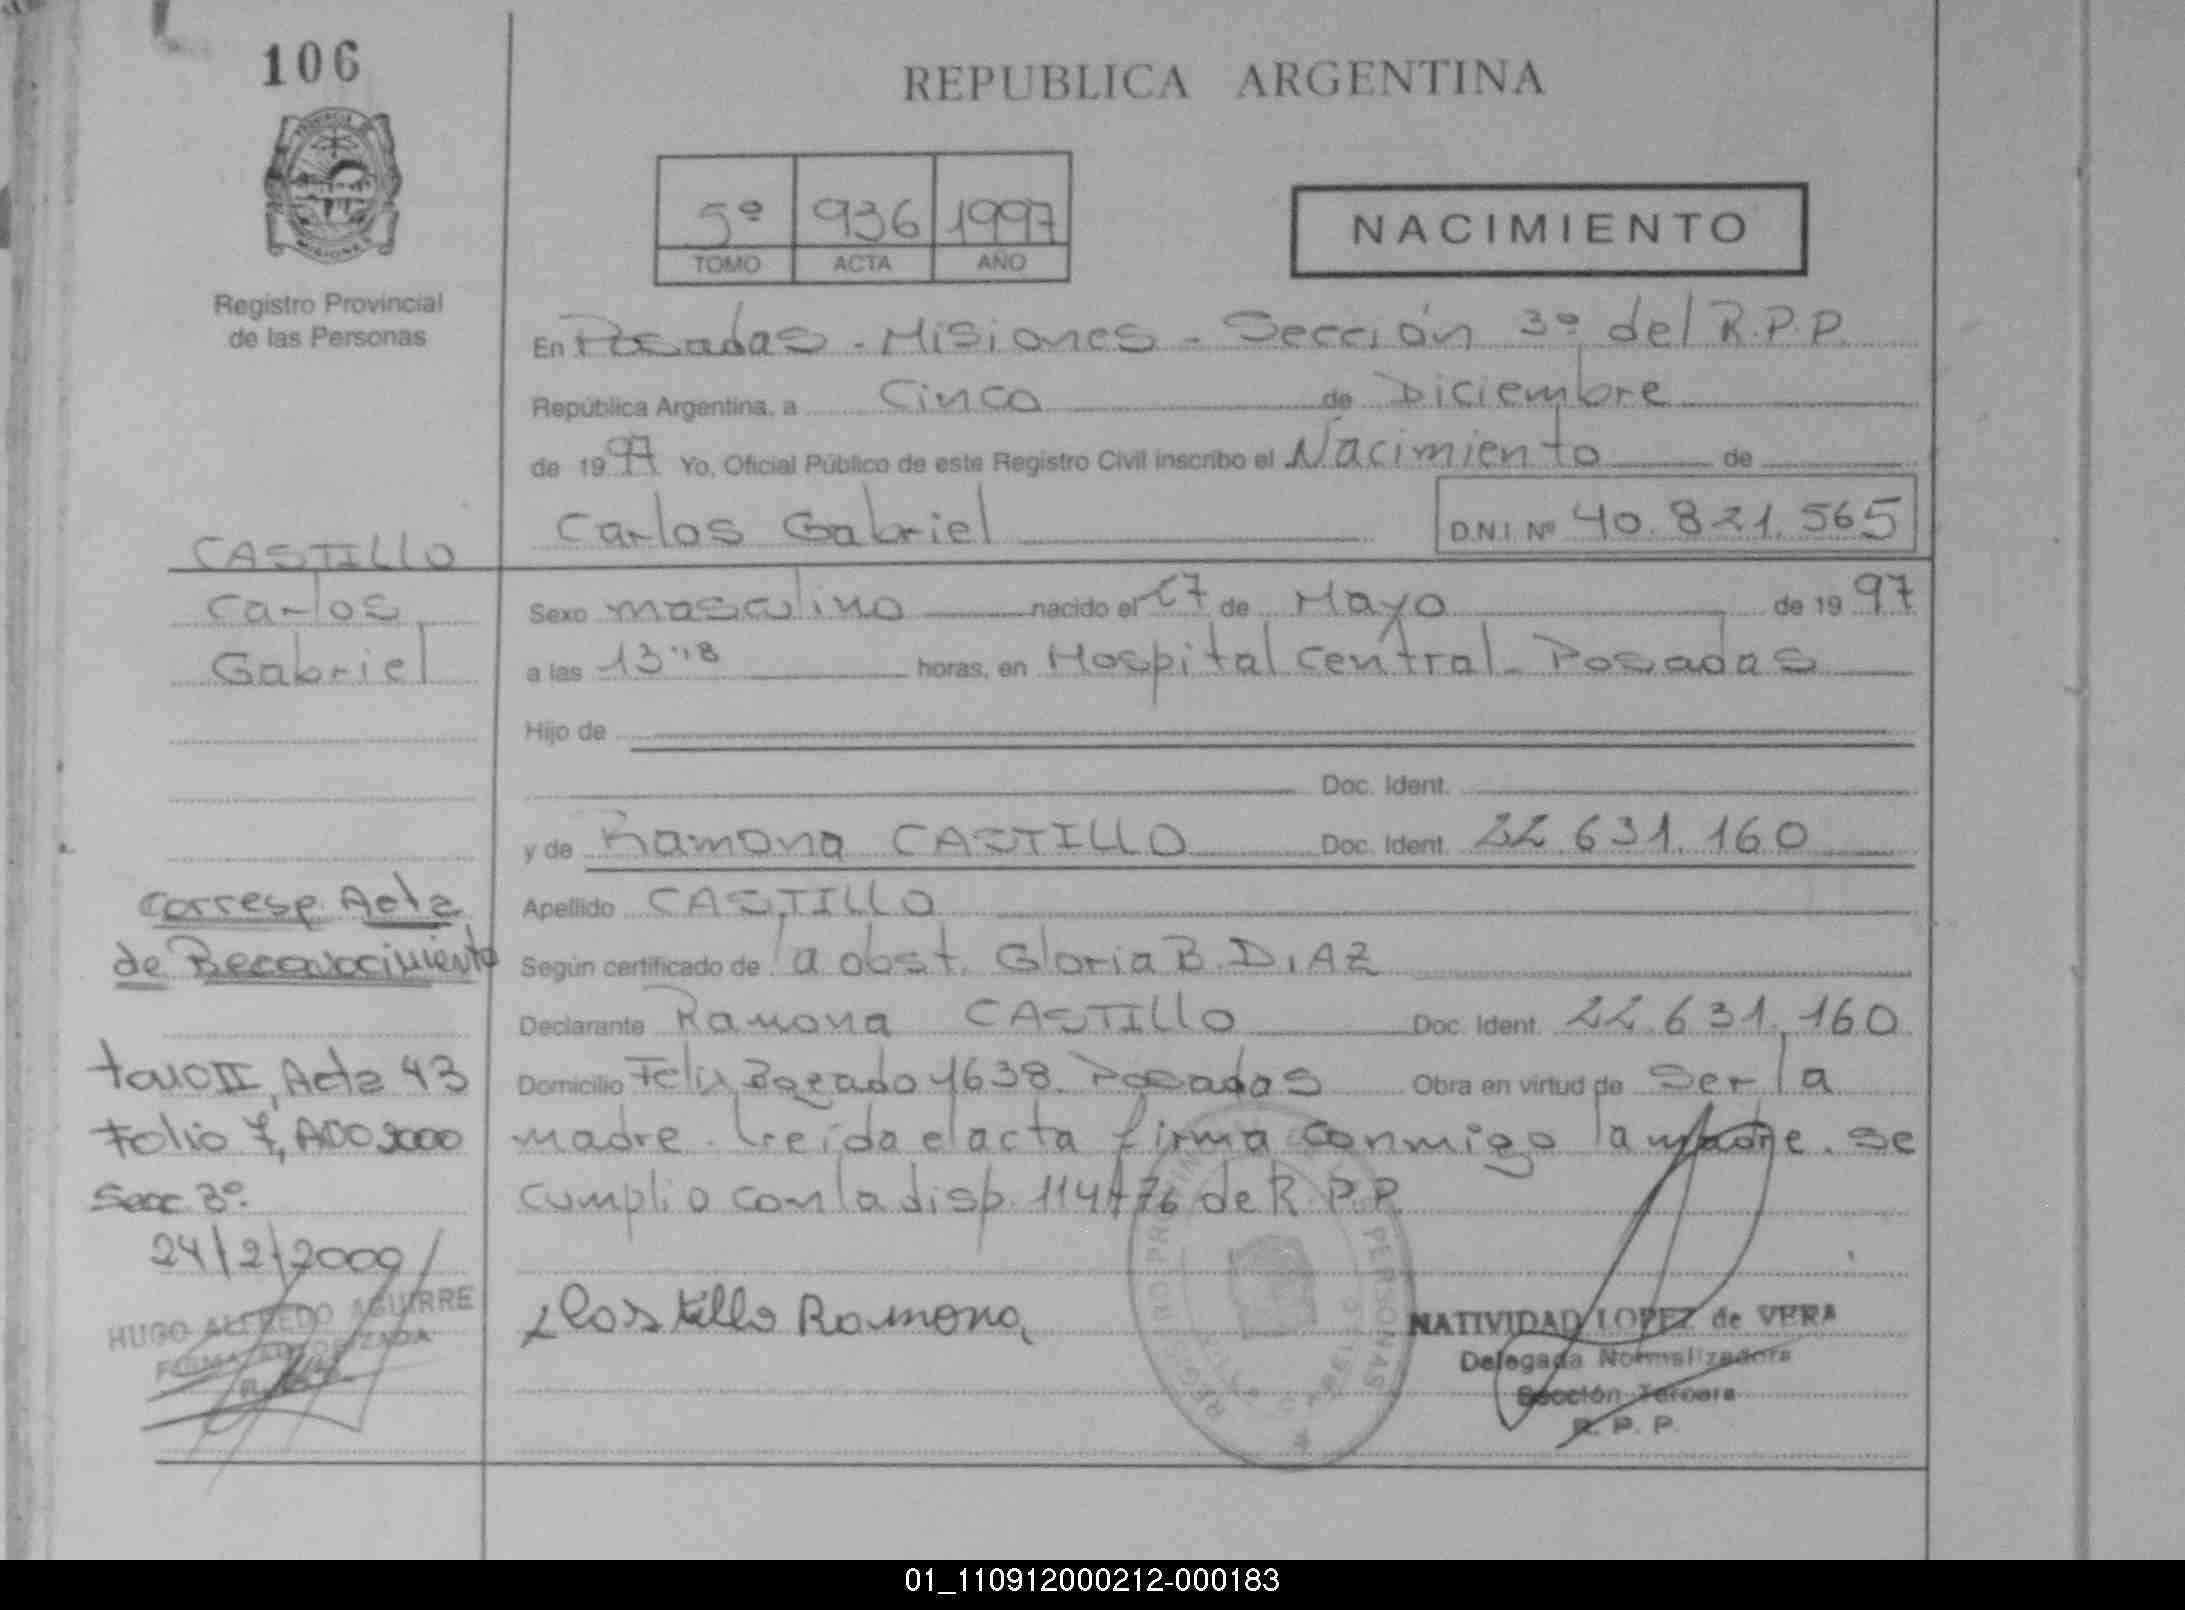 106
REPUBLICA ARGENTINA
5º 936 1997
TOMO ACTA AÑO
NACIMIENTO
Registro Provincial
de las Personas
En Posadas - Misiones - Sección 3º del R.P.P.
República Argentina, a Cinco de Diciembre
de 1997 Yo, Oficial Público de este Registro Civil inscribo el Nacimiento de
Carlos Gabriel D.N.I. Nº 40.821.565
CASTILLO
Carlos
Gabriel
Sexo masculino nacido el de Mayo de 1997
a las 13 horas, en Hospital Central - Posadas
Hijo de
Doc. Ident.
y de Ramona CASTILLO Doc. Ident. 22.631.160
Apellido CASTILLO
Según certificado de la obst. Gloria B. DIAZ
Declarante Ramona CASTILLO Doc. Ident. 22.631.160
Domicilio Felix Bogado 1638. Posadas Obra en virtud de ser la
madre. Leída el acta firma conmigo la madre. se
cumplio con la disp. 114/76 de R.P.P.
Corresp. Acta
de Reconocimiento
tomo II, Acta 43
Folio 7, 2000
Secc 3º.
24/2/2000
HUGO ALFREDO AGUIRRE
FIRMA AUTORIZADA
Castillo Ramona
REGISTRO PROVINCIAL PERSONAS
NATIVIDAD LOPEZ de VERA
Delegada Normalizadora
Sección Tercera
R. P. P.
01_110912000212-000183